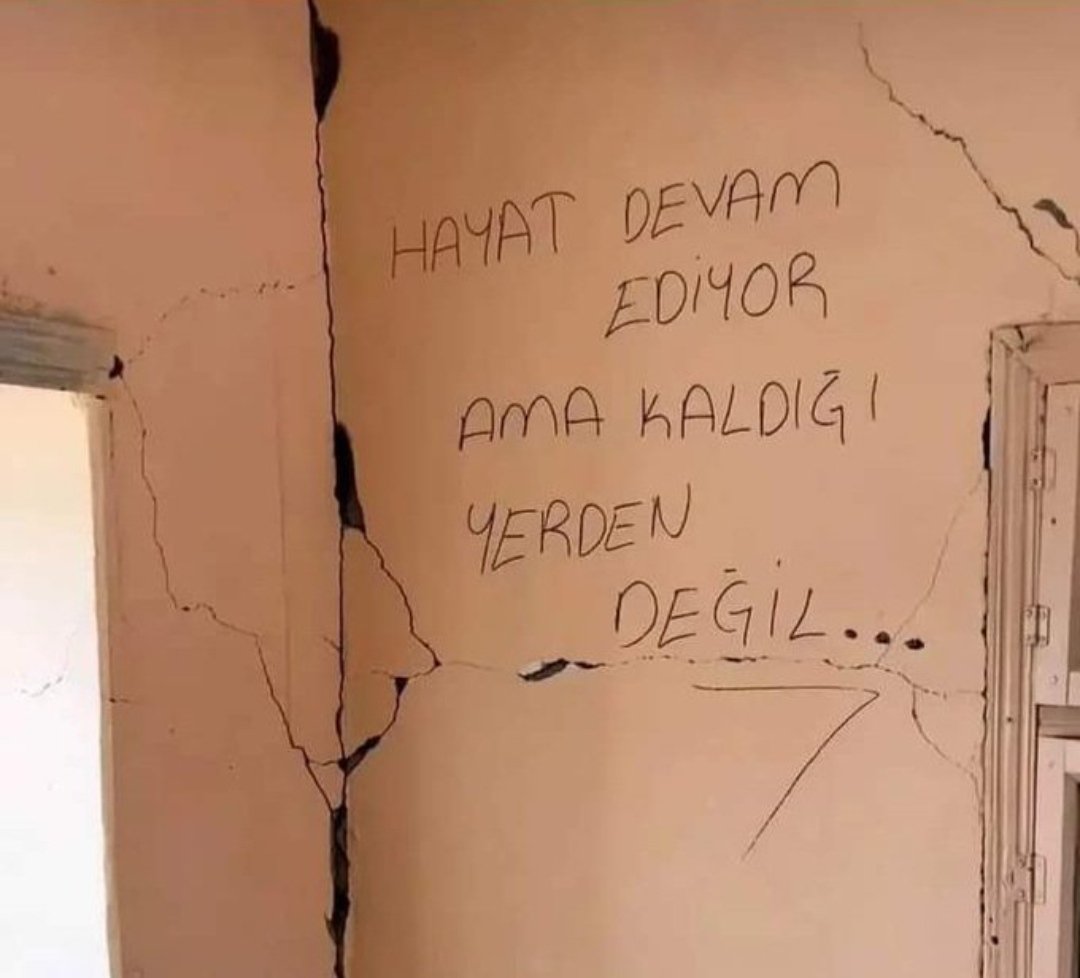 HAYAT DEVAM
EDİYOR
AMA KALDIĞI
YERDEN
DEĞİL...